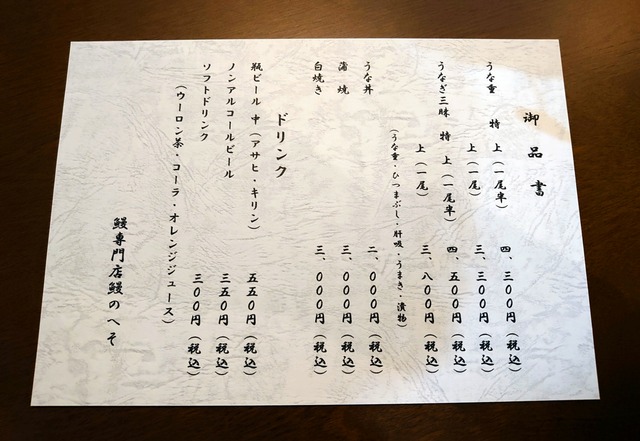 御品書
うな重 特 上(一尾半) 四、三〇〇円(税込)
上(一尾) 三、三〇〇円(税込)
うなぎ三昧 特 上(一尾半) 四、五〇〇円(税込)
上(一尾) 三、八〇〇円(税込)
(うな重・ひつまぶし・肝吸・うまき・漬物)
うな丼 二、〇〇〇円(税込)
蒲焼 三、〇〇〇円(税込)
白焼き 三、〇〇〇円(税込)
ドリンク
瓶ビール 中(アサヒ・キリン) 五五〇円(税込)
ノンアルコールビール 三五〇円(税込)
ソフトドリンク 三〇〇円(税込)
(ウーロン茶・コーラ・オレンジジュース)
鰻専門店鰻のへそ